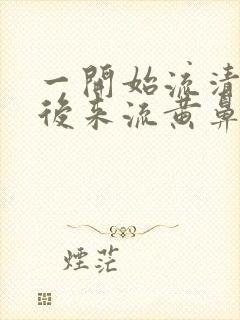 一開始流清
後來流黃鼻
煙茫